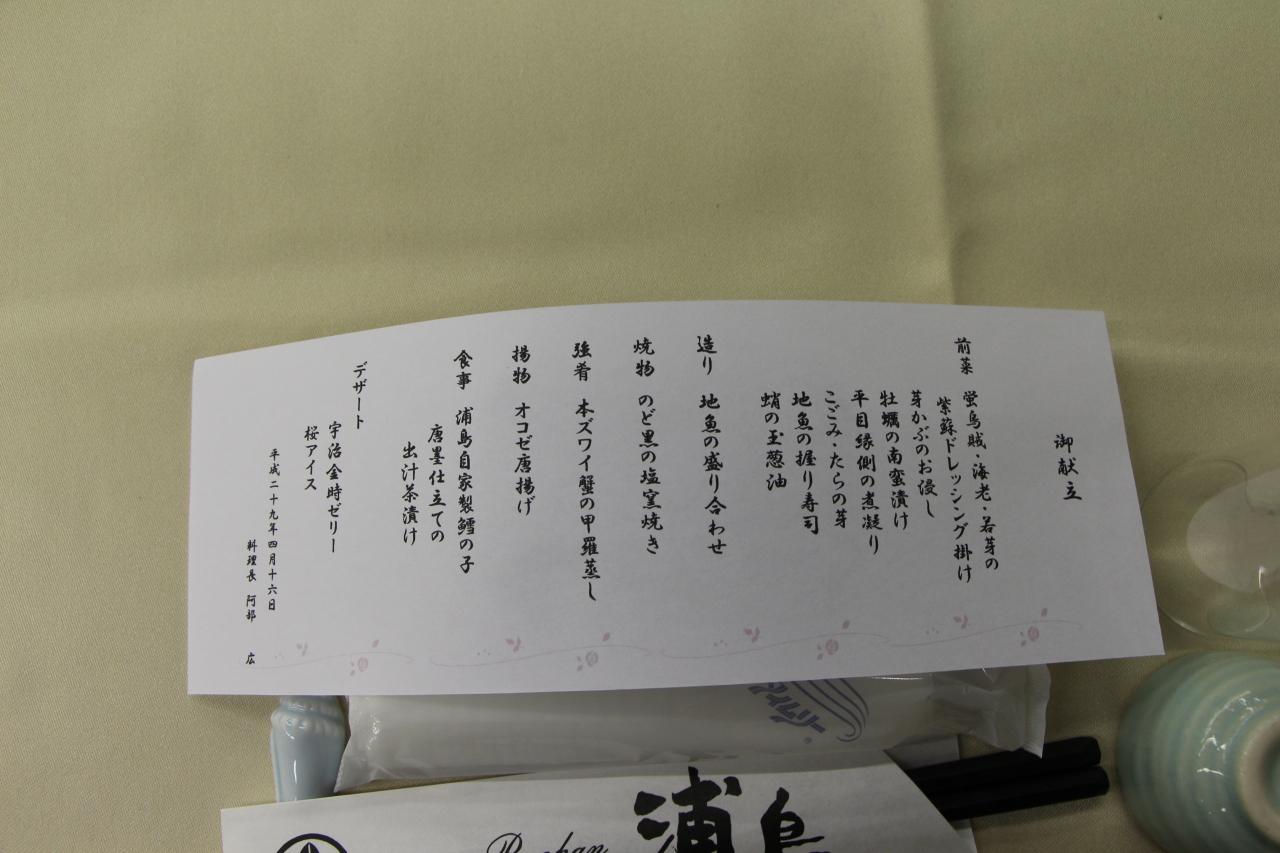 御献立
前菜 蛍烏賊・海老・若芽の
紫蘇ドレッシング掛け
芽かぶのお浸し
牡蠣の南蛮漬け
平目縁側の煮凝り
こごみ・たらの芽
地魚の握り寿司
蛸の玉葱油
造り 地魚の盛り合わせ
焼物 のど黒の塩窯焼き
強肴 本ズワイ蟹の甲羅蒸し
揚物 オコゼ唐揚げ
食事 浦島自家製鱈の子
唐墨仕立ての
出汁茶漬け
デザート
宇治金時ゼリー
桜アイス
平成二十九年四月十六日
料理長 阿部 広
浦島